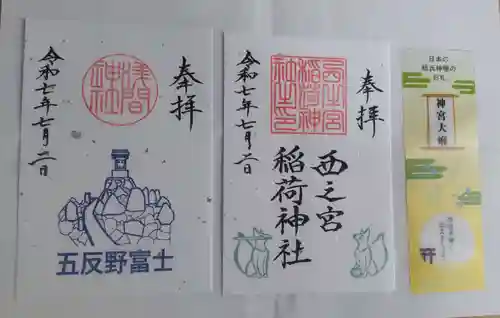 奉拝
浅間神社
令和七年七月二日
五反野富士
奉拝
西之宮稲荷神社印
令和七年七月二日
西之宮
稲荷神社
日本の
総氏神様の
お札
神宮大麻